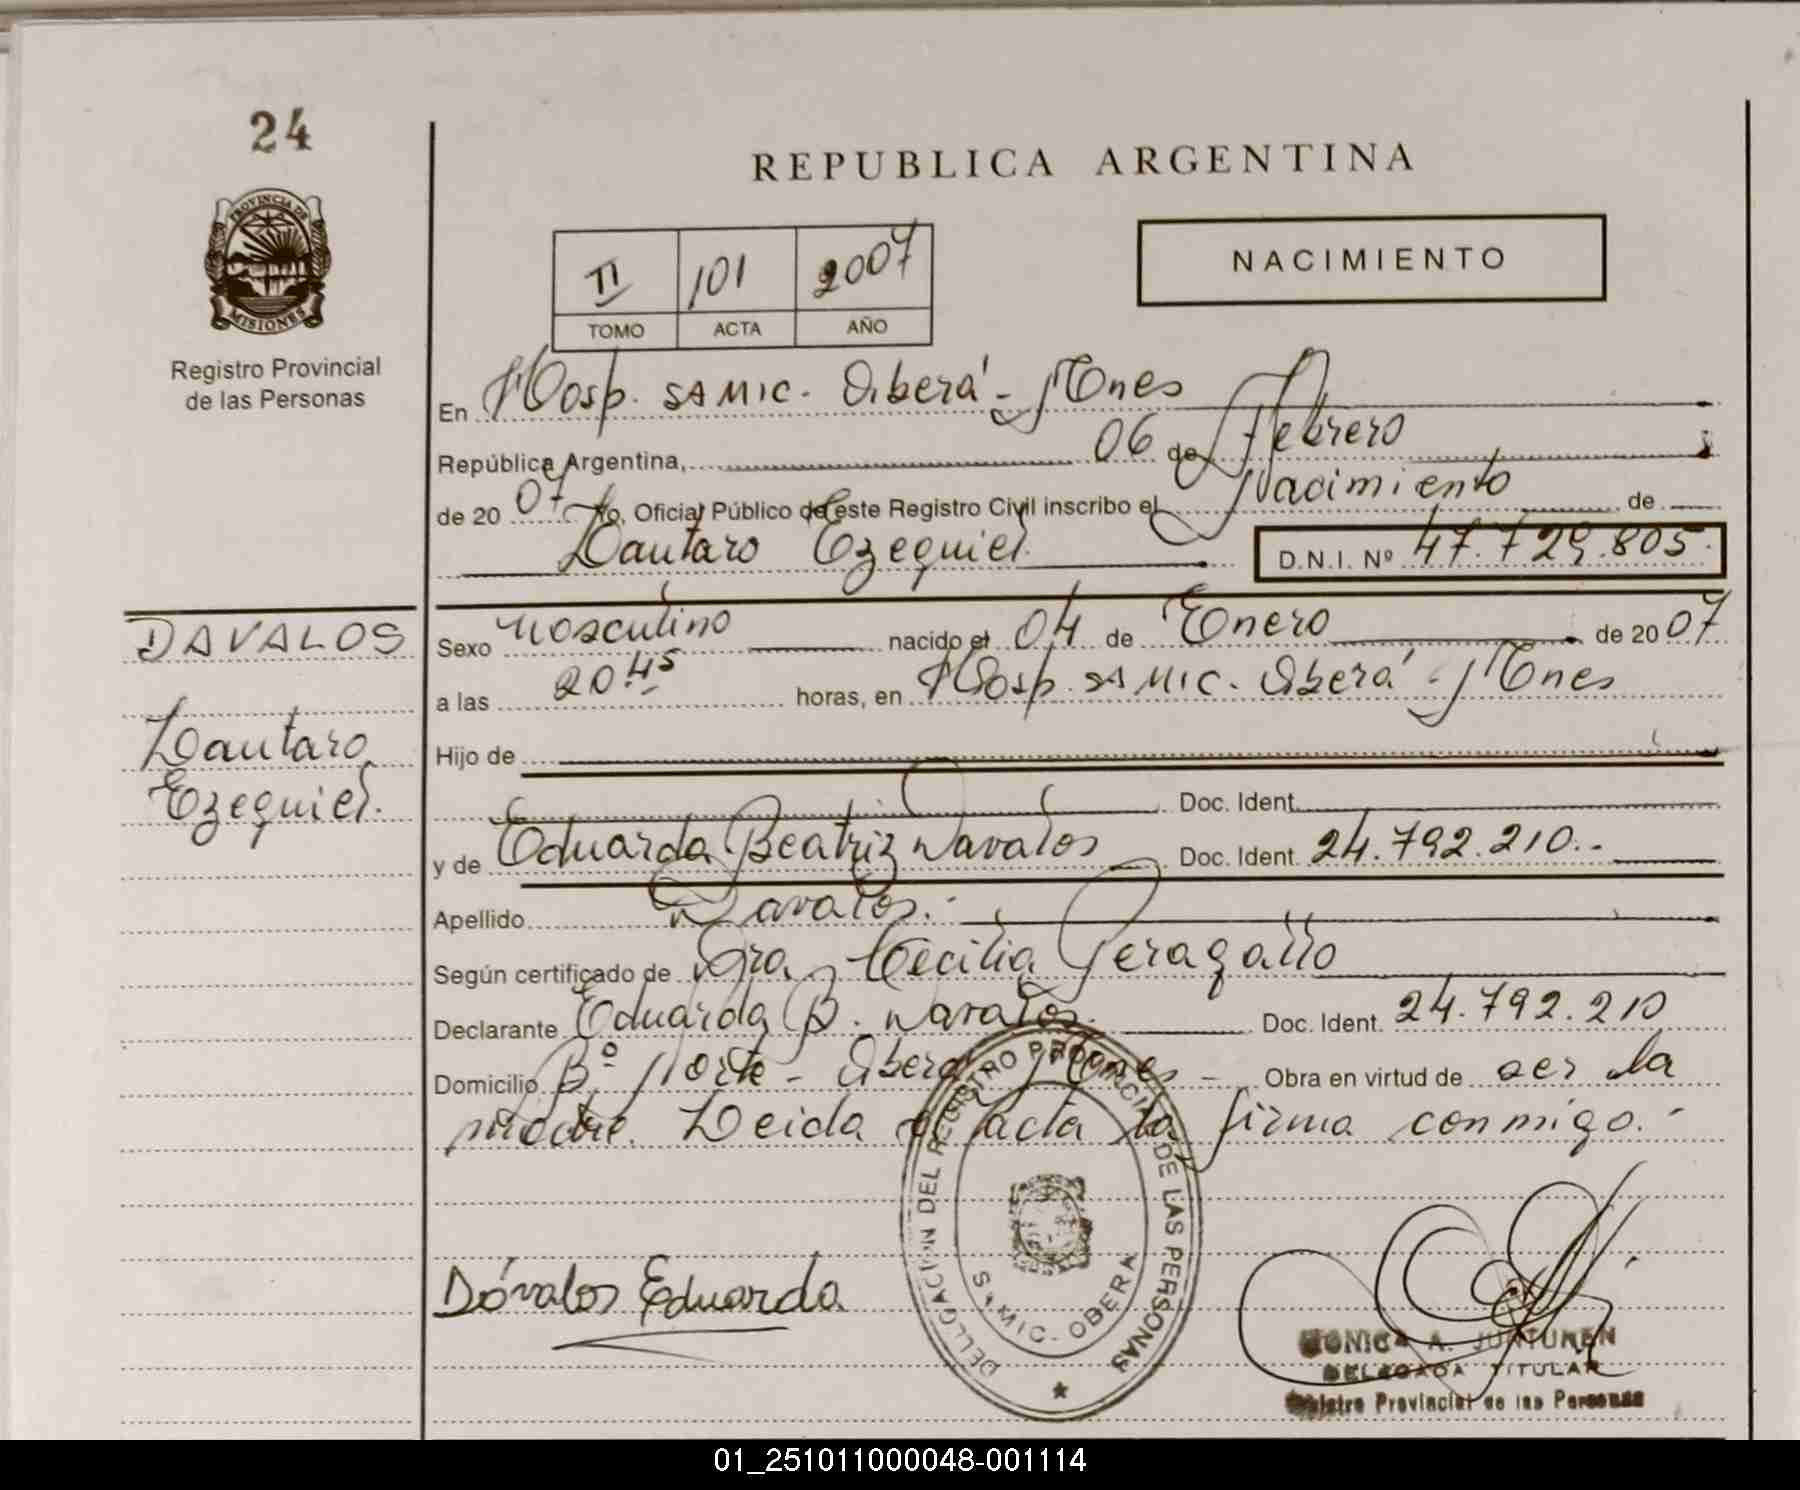 24
REPUBLICA ARGENTINA
PROVINCIA DE
MISIONES
Registro Provincial
de las Personas
II 101 2007
TOMO ACTA AÑO
NACIMIENTO
En Hosp. SAMIC. Oberá - Mnes
República Argentina, 06 de Febrero
de 20 07 Yo, Oficial Público de este Registro Civil inscribo el Nacimiento de
Lautaro Ezequiel D.N.I. Nº 47.729.805.
DAVALOS
Lautaro
Ezequiel.
Sexo Masculino nacido el 04 de Enero de 20 07
a las 20.45 horas, en Hosp. SAMIC. Oberá - Mnes
Hijo de
Doc. Ident.
y de Eduarda Beatriz Davalos Doc. Ident. 24.792.210.-
Apellido Davalos.-
Según certificado de Dra. Cecilia Peragallo
Declarante Eduarda B. Davalos. Doc. Ident. 24.792.210
Domicilio Bº Norte - Oberá Mnes - Obra en virtud de ser la
madre. Leida el acta la firma conmigo.-
DELEGACION DEL REGISTRO PROVINCIAL DE LAS PERSONAS
SAMIC - OBERA
Dávalos Eduarda
MONICA A. JUNTUNEN
DELEGADA TITULAR
Registro Provincial de las Personas
01_251011000048-001114